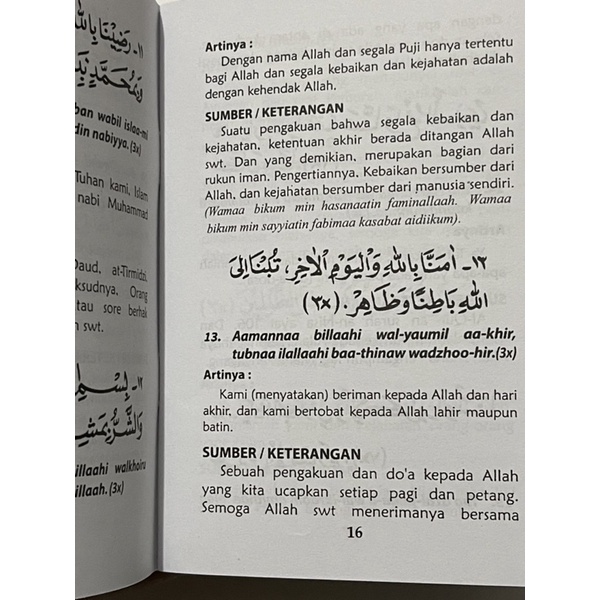 ١١- رَضِيْنَا بِاللهِ
وَبِمُحَمَّدٍ
ban wabil islaa-mi
din nabiyya. (3x)
Tuhan kami, Islam
nabi Muhammad
Daud, at-Tirmidzi,
ksudnya, Orang
atau sore berhak
n swt.
١٢- بِسْمِ
وَالشَّرُّ بِمَشِ
illaahi walkhoiru
illaah. (3x)
Artinya :
Dengan nama Allah dan segala Puji hanya tertentu
bagi Allah dan segala kebaikan dan kejahatan adalah
dengan kehendak Allah.
SUMBER / KETERANGAN
Suatu pengakuan bahwa segala kebaikan dan
kejahatan, ketentuan akhir berada ditangan Allah
swt. Dan yang demikian, merupakan bagian dari
rukun iman. Pengertiannya. Kebaikan bersumber dari
Allah, dan kejahatan bersumber dari manusia sendiri.
(Wamaa bikum min hasanaatin faminallaah. Wamaa
bikum min sayyiatin fabimaa kasabat aidiikum).
١٣- اٰمَنَّا بِاللهِ وَالْيَوْمِ الْاٰخِرِ، تُبْنَا اِلَى
اللهِ بَاطِنًا وَظَاهِرْ. (٣x)
13. Aamannaa billaahi wal-yaumil aa-khir,
tubnaa ilallaahi baa-thinaw wadzhoo-hir.(3x)
Artinya :
Kami (menyatakan) beriman kepada Allah dan hari
akhir, dan kami bertobat kepada Allah lahir maupun
batin.
SUMBER / KETERANGAN
Sebuah pengakuan dan do'a kepada Allah
yang kita ucapkan setiap pagi dan petang.
Semoga Allah swt menerimanya bersama
16